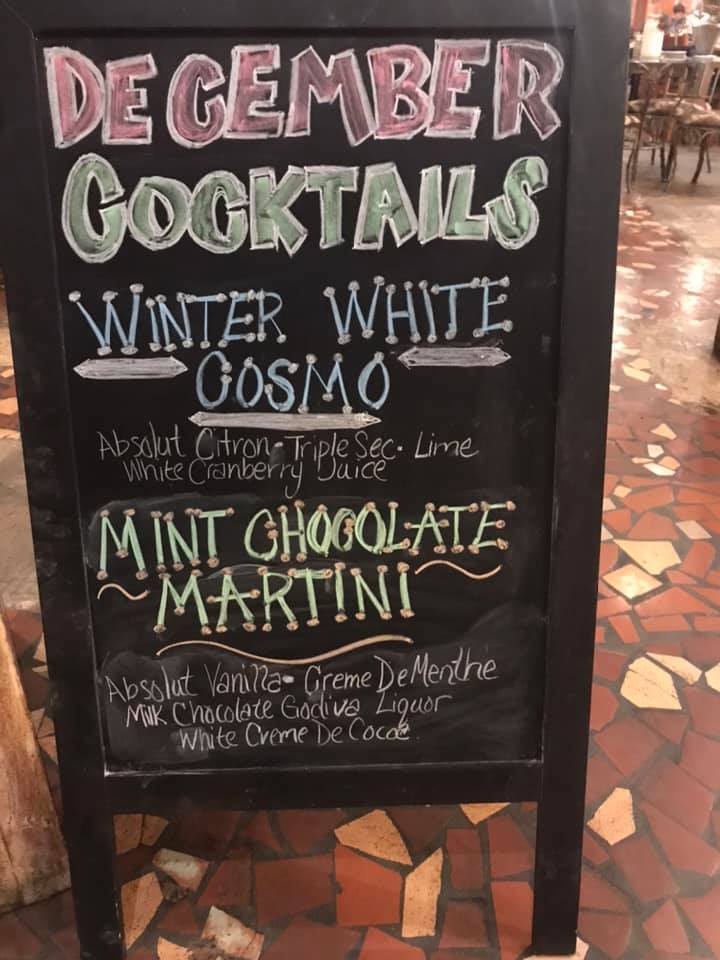 DECEMBER
COCKTAILS
WINTER WHITE
COSMO
Absolut Citron • Triple Sec • Lime
White Cranberry Juice
MINT CHOCOLATE
MARTINI
Absolut Vanilla • Creme De Menthe
Milk Chocolate Godiva Liquor
White Creme De Cocoe